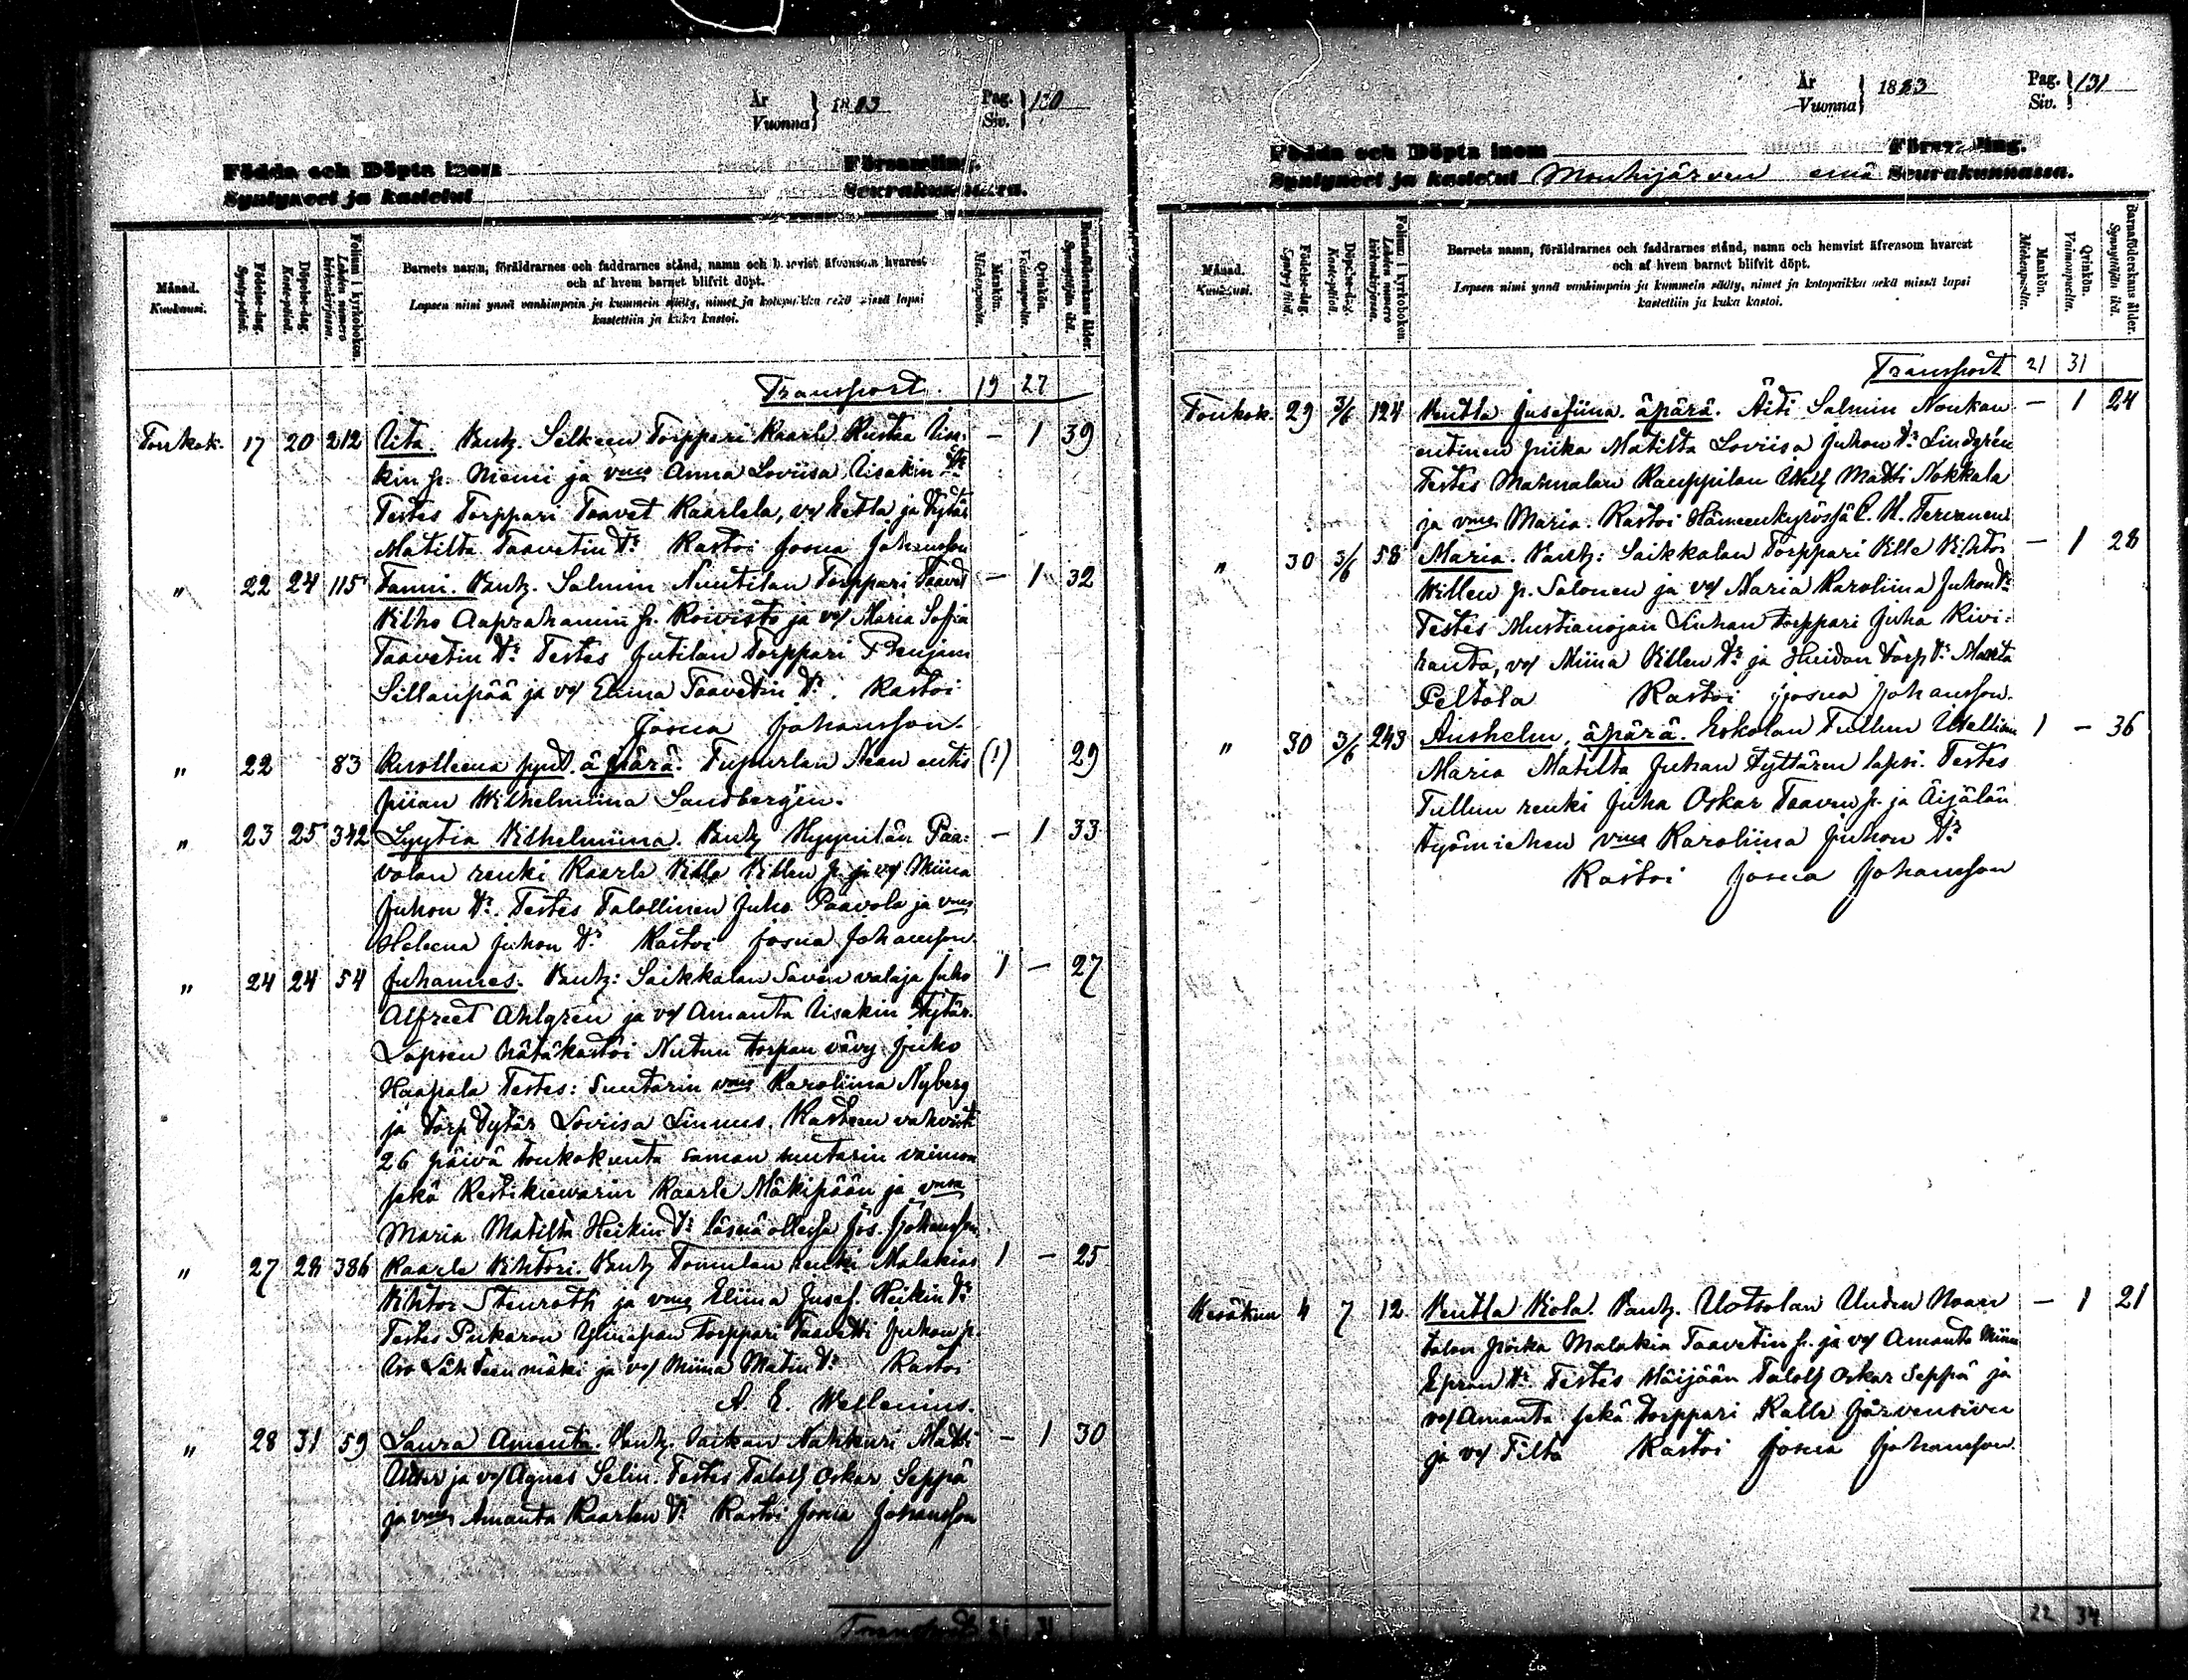 År
Vuonna } 1883
Pag.
Siv. } 130
Födda och Döpta inom Församling.
Syntyneet ja kastetut Seurakunnassa.
Månad.
Kuukausi.
Födelse-dag.
Synty-päivä.
Döpelse-dag.
Kaste-päivä.
Folium i kyrkoboken.
Lehden numero kirkonkirjassa.
Barnets namn, föräldrarnes och faddrarnes stånd, namn och hemvist äfvensom hvarest
och af hvem barnet blifvit döpt.
Lapsen nimi ynnä vanhimpain ja kummein sääty, nimet ja kotopaikka sekä missä lapsi
kastettiin ja kuka kastoi.
Mankön.
Miehenpuolta.
Qvinkön.
Vaimonpuolta.
Barnaföderskans ålder.
Synnyttäjän ikä.
Transport. 19 27
Toukok. 17 20 212 Iita. Vanh. Selkeen Torppari Kaarle Kustaa Iisa-
kin p. Niemi ja vmo Anna Loviisa Iisakin tr
Testes Torppari Taavet Kaarlela, vo Eetla ja tytär
Matilta Taavetin tr Kastoi Josua Johansson
" 22 24 115 Fanni. Vanh. Salmin Nuutilan Torppari Taavet
Vilho Aaprahamin p. Koivisto ja vo Maria Sofia
Taavetin tr Testes Jutilan Torppari F Benjam
Sillanpää ja vo Emma Taavetin tr. Kastoi
Josua Johansson.
" 22 83 Kuolleena synt. äpärä. Tupurlan Aean entis (1) 29
piian Wilhelmiina Sandbergin.
" 23 25 342 Lyytia Vilhelmiina. Vanh Hyynilän Paa- — 1 33
volan renki Kaarle Ville Villen p. ja vo Miina
Juhon tr. Testes Talollinen Juho Paavola ja vmo
Heleena Juhon tr Kastoi Josua Johansson
" 24 24 54 Juhannes. Vanh: Saikkalan Saven valaja Juho 1 — 27
Alfreet Ahlgren ja vo Amanta Iisakin tytär.
Lapsen hätäkastoi Niitun torpan vävy Juho
Haapala Testes: Suutarin vmo Karoliina Nyberg
ja torp tytär Loviisa Linnus. Kasteen vahvisti
26 päivä toukokuuta saman suutarin vaimon
sekä Kestikiewarin Kaarle Mäkipään ja vmon
Maria Matilta Heikin tr läsnä ollessa Jos. Johansson.
" 27 28 386 Kaarle Vihtori. Vanh Tomulan renki Malakias 1 — 25
Vihtor Stenroth ja vmo Eliina Jusef. Heikin tr
Testes Pukaron Ylinapan torppari Taavetti Juhon p.
Iso Lähteenmäki ja vo Miina Matin tr Kastoi
A. E. Wellenius.
" 28 31 59 Laura Amanta. Vanh. Saikan Nahkuri Matti — 1 30
ja vo Agnes Selin. Testes Taloll Oskar Seppä
ja vmo Amanta Kaarlen tr Kastoi Josua Johansson
Transport 21 31
År
Vuonna } 1883
Pag.
Siv. } 131
Födda och Döpta inom Församling.
Syntyneet ja kastetut Mouhijärven emä Seurakunnassa.
Månad.
Kuukausi.
Födelse-dag.
Synty-päivä.
Döpelse-dag.
Kaste-päivä.
Folium i kyrkoboken.
Lehden numero kirkonkirjassa.
Barnets namn, föräldrarnes och faddrarnes stånd, namn och hemvist äfvensom hvarest
och af hvem barnet blifvit döpt.
Lapsen nimi ynnä vanhimpain ja kummein sääty, nimet ja kotopaikka sekä missä lapsi
kastettiin ja kuka kastoi.
Mankön.
Miehenpuolta.
Qvinkön.
Vaimonpuolta.
Barnaföderskans ålder.
Synnyttäjän ikä.
Transport 21 31
Toukok. 29 3/6 124 Hentla Jusefiina. äpärä. Äiti Salmin Noukan — 1 24
entinen piika Matilta Loviisa Juhon tr Lindgrén
Testes Mahnalan Kauppilan Matti Nokkala
ja vmo Maria. Kastoi Hämeenkyrössä C. H. Tervanen
" 30 3/6 58 Maria. Vanh: Saikkalan Torppari Ville Vihtor — 1 28
Villen p. Salonen ja vo Maria Karoliina Juhon tr
Testes Mustianojan Luhan torppari Juha Kivi-
ranta, vo Miina Villen tr ja Huidan torp tr Manta
Peltola Kastoi Josua Johansson.
" 30 3/6 243 Anshelm, äpärä. Eskolan Tullun Itsellisen 1 — 36
Maria Matilta Juhan tyttären lapsi. Testes
Tullun renki Juha Oskar Taaven p. ja Äijälän
työmiehen vmo Karoliina Juhon tr
Kastoi Josua Johansson
Kesäkuu 4 7 12 Hentla Viola. Vanh. Uotsolan Uuden Noan — 1 21
talon poika Malakia Taavetin p. ja vo Amanta Miina
Epran tr Testes Häijään Taloll Oskar Seppä ja
vo Amanta sekä torppari Kalle Järvensivu
ja vo Tilta Kastoi Josua Johansson.
22 34